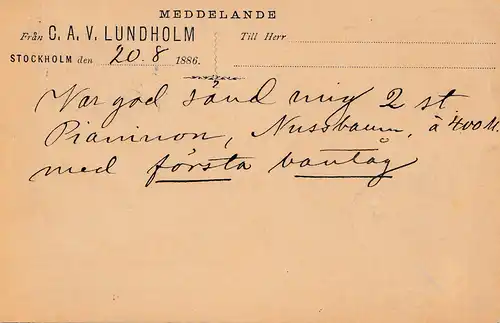 MEDDELANDE
Från C. A. V. LUNDHOLM
Till Herr
STOCKHOLM den 20.8 1886.
Var god sänd mig 2 st.
Pianinon, Nussbaum, à 400 M.
med första bantåg